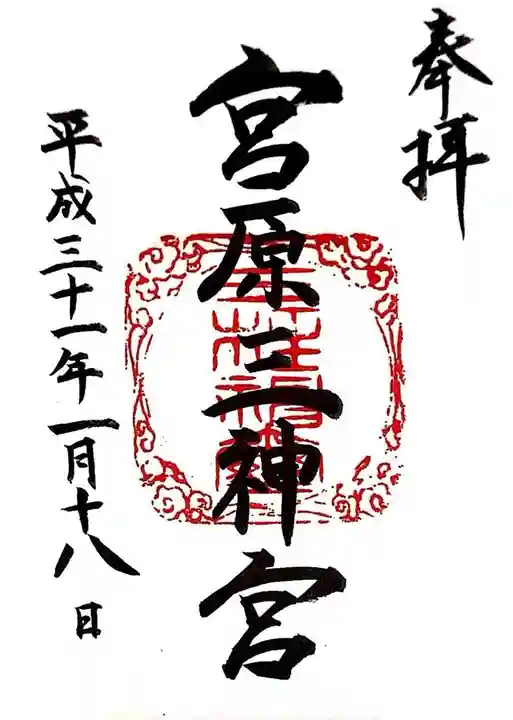 奉拝
宮原三神宮
平成三十一年一月十八日